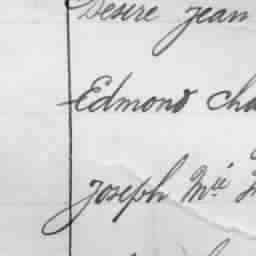 Desire Jean
Edmond cha
Joseph Mie